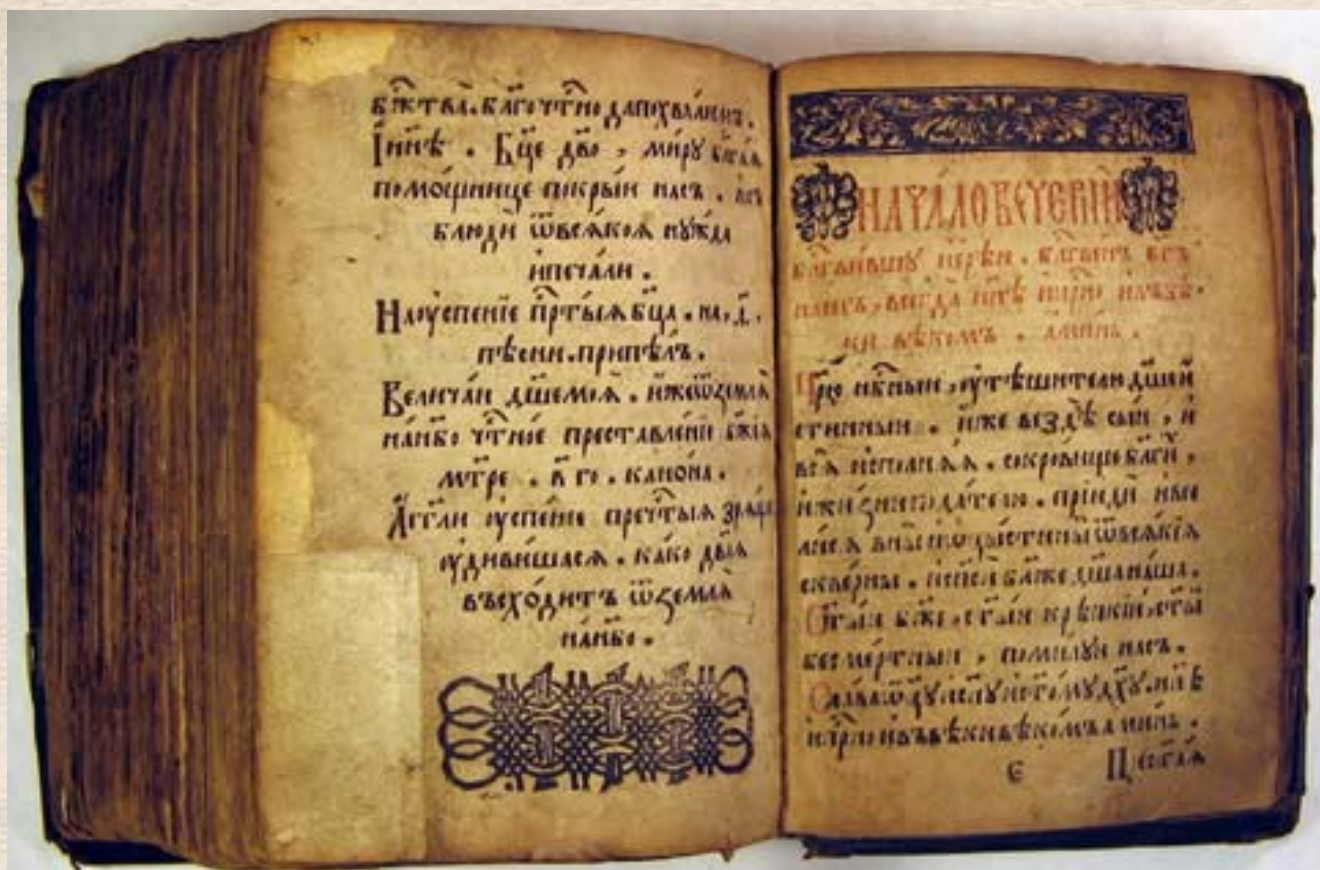 бж҃тва̀. бл҃гочт҃но да похва́лимъ.
І҆ ны́нѣ. Бц҃е дв҃о, ми́ру бл҃га́ѧ
помо́щнице покры́и на́съ.
блюдѝ ѿ всѧ́коѧ нꙋ́жда
и҆ печа́ли.
На ᲂу҆спе́нїе прⷭ҇ты́ѧ бц҃а. на, д҃.
пѣ́сни. припѣ́лъ.
Велича́й дш҃е моѧ̀. и҆́же ѿ землѧ̀
на́ нб҃о чⷭ҇тно́е преставле́нїе бж҃їѧ
мт҃ре. в҃ го. кано́на.
А҆́гг҃ли ᲂу҆спе́нїе пречⷭ҇тыѧ зрѧ́ще
ᲂу҆диви́шасѧ. ка́ко дв҃аѧ
въсхо́дитъ ѿ землѧ̀
на́ нб҃о.
НАЧА́ЛО ВЕЧЕ́РНИ
бл҃гви́вшꙋ і҆ере́ѡви. бл҃гве́нъ бг҃ъ
на́шъ, всегда̀ и҆ нн҃ѣ и҆ при́сно и҆ въ вѣ́
ки вѣко́мъ. а҆ми́нь.
Цр҃ю нбⷭ҇ный, ᲂу҆тѣ́шителю дш҃е и҆́
стинный. и҆́же вездѣ̀ сы́й, и҆
всѧ̀ и҆сполнѧ́ѧ. сокро́вище бл҃ги́и,
и҆ жи́зни пода́телю. прїидѝ и҆ все
ли́сѧ в ны̀ и҆ ѡ҆чи́сти ны̀ ѿ всѧ́кїѧ
скве́рны. и҆ спсѝ бл҃же дш҃а на́ша.
Ст҃ы́и бж҃е, ст҃ы́и крѣ́пкїи, ст҃ы́и
бесме́ртныи, поми́лꙋи на́съ.
Сла́ва ѻ҆ц҃ꙋ и҆ сн҃ꙋ и҆ ст҃о́мꙋ дх҃ꙋ и҆ нн҃ѣ
и҆ прⷭ҇но и҆ въ вѣ́ки вѣко́мъ а҆ми́нь.
є Прест҃аѧ